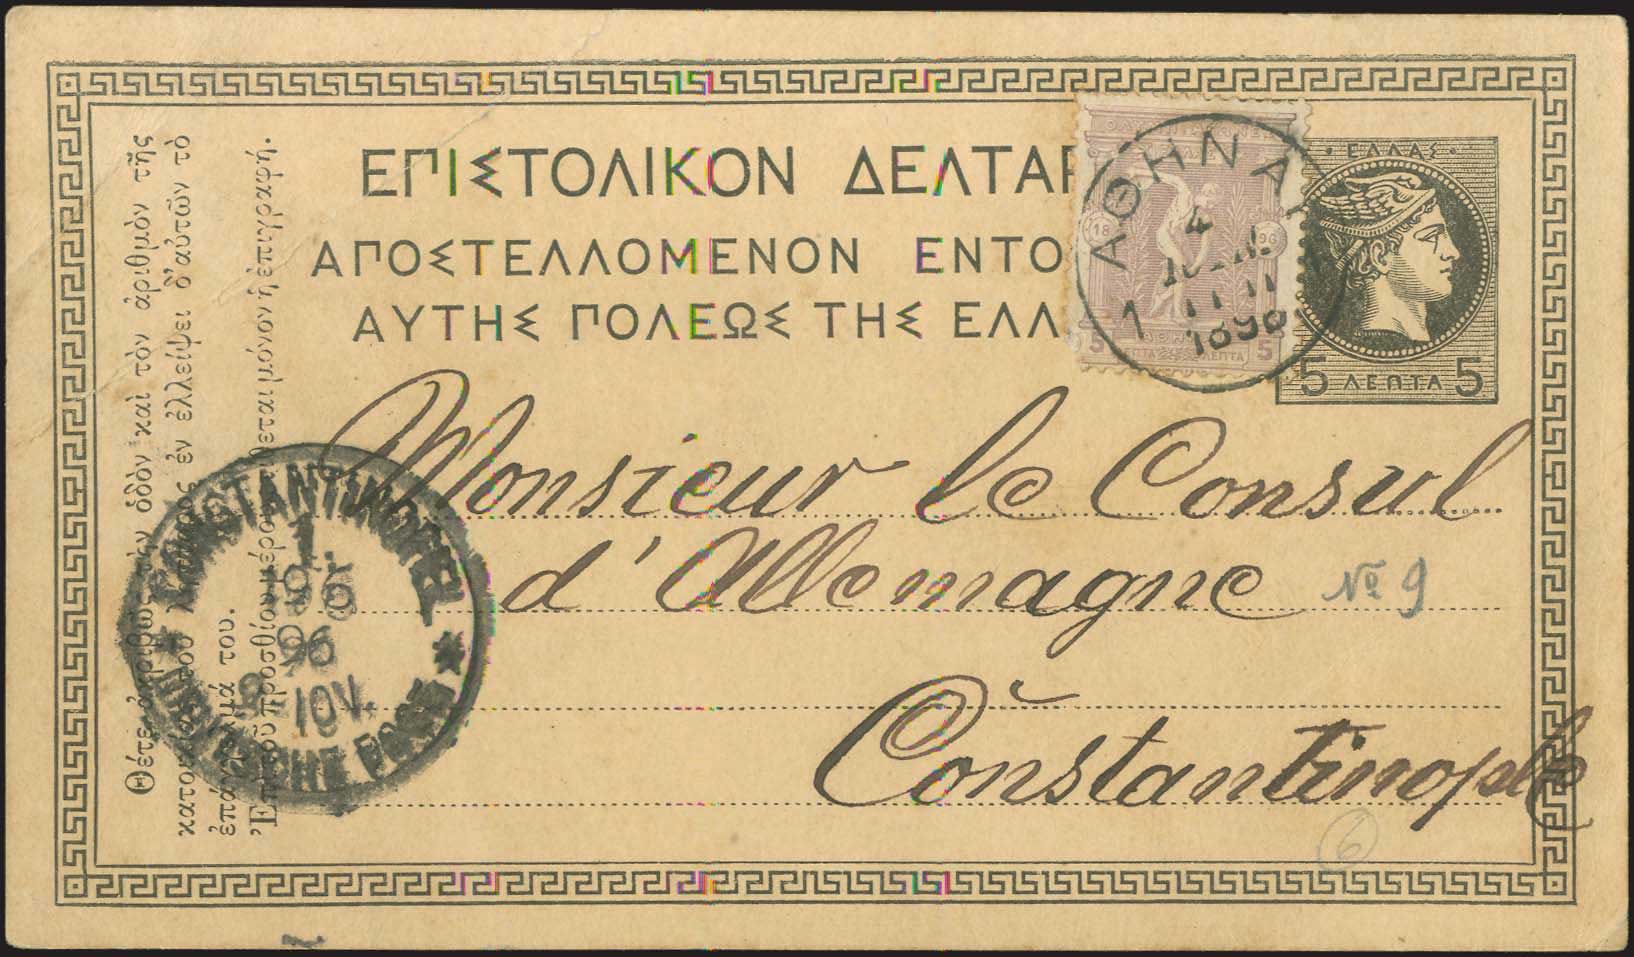 ΕΠΙΣΤΟΛΙΚΟΝ ΔΕΛΤΑΡ
ΑΠΟΣΤΕΛΛΟΜΕΝΟΝ ΕΝΤΟ
ΑΥΤΗΣ ΠΟΛΕΩΣ ΤΗΣ ΕΛΛ
18 96
5 ΛΕΠΤΑ 5
ΑΘΗΝΑΙ
4
1
1896
· ΕΛΛΑΣ ·
5 ΛΕΠΤΑ 5
Monsieur le Consul
d'Allemagne No 9
Constantinople
6
Θέτε ἀκριβῶς τὴν ὁδὸν καὶ τὸν ἀριθμὸν τῆς
κατοικίας τοῦ ἐν ἐλλείψει δ'αὐτῶν τὸ
ἐπάγγελμά του.
Ἐπὶ τοῦ προσθίου μέρους θεται μόνον ἡ ἐπιγραφή.
CONSTANTINOPEL
1
96
96
10V.
DEUTSCHE POST